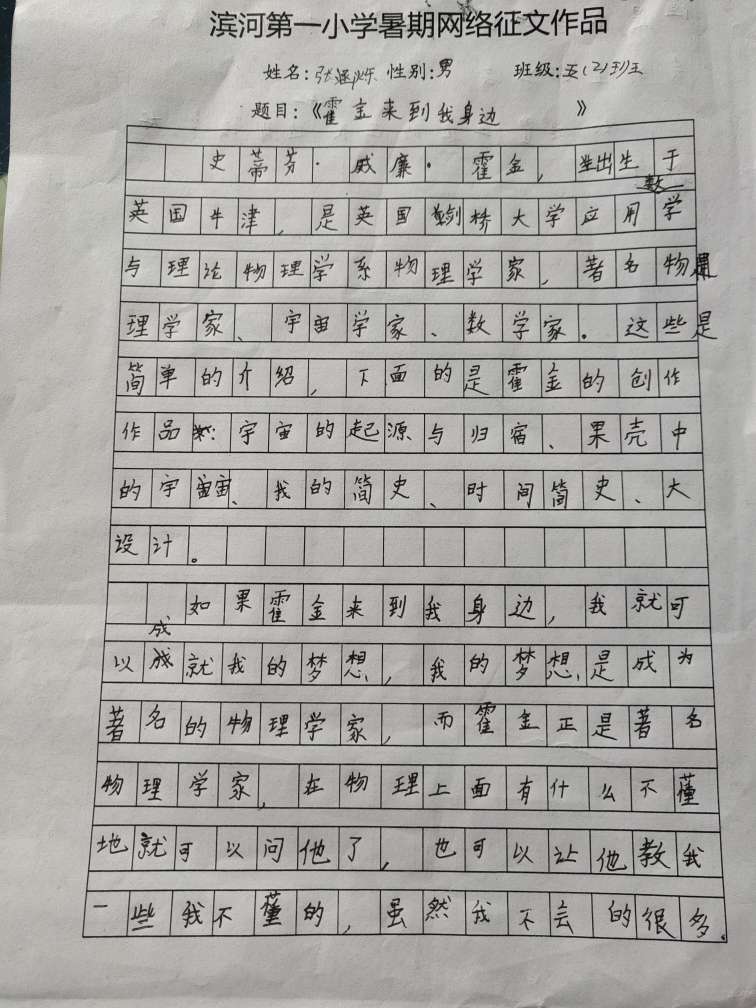 滨河第一小学暑期网络征文作品
姓名:张涵烁 性别:男 班级:五(2)班
题目:《霍金来到我身边》
史蒂芬·威廉·霍金,出生于
英国牛津,是英国剑桥大学应用数学
与理论物理学系物理学家,著名物
理学家、宇宙学家、数学家。这些是
简单的介绍,下面的是霍金的创作
作品:宇宙的起源与归宿、果壳中
的宇宙、我的简史、时间简史、大
设计。
如果霍金来到我身边,我就可
以成就我的梦想,我的梦想是成为
著名的物理学家,而霍金正是著名
物理学家,在物理上面有什么不懂
地就可以问他了,也可以让他教我
一些我不懂的,虽然我不会的很多.